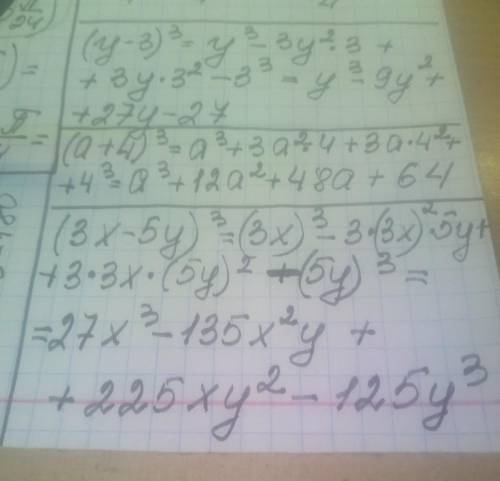 (y-3)³ = y³-3y²·3 +
+ 3y·3²-3³ = y³-9y²+
+27y-27
(a+4)³=a³+3a²·4+3a·4²+
+4³=a³+12a²+48a+64
(3x-5y)³=(3x)³-3·(3x)²·5y+
+3·3x·(5y)²-(5y)³=
=27x³-135x²y +
+225xy²-125y³